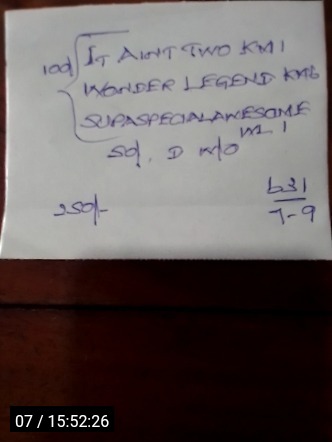 100/ IT AINT TWO KM1
WONDER LEGEND KM6
SUPASPECIALAWESOME
M 1
50/. D W/O
250/-
631
7-9
07 / 15:52:26